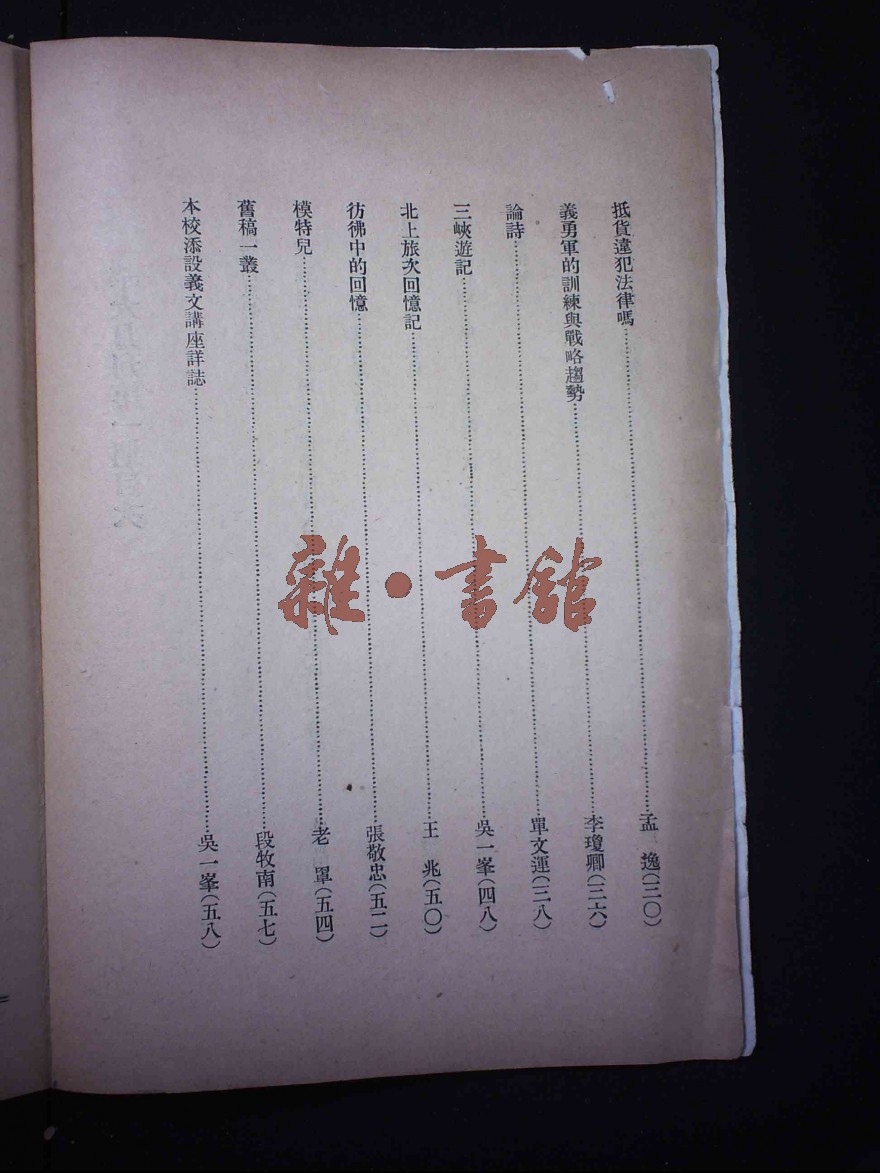 抵貨違犯法律嗎……孟逸(三〇)
義勇軍的訓練與戰略趨勢……李瓊卿(三六)
論詩……單文運(三八)
三峽遊記……吳一峯(四八)
北上旅次回憶記……王兆(五〇)
彷彿中的回憶……張敬忠(五二)
模特兒……老單(五四)
舊稿一叢……段牧南(五七)
本校添設義文講座詳誌……吳一峯(五八)
雜·書館